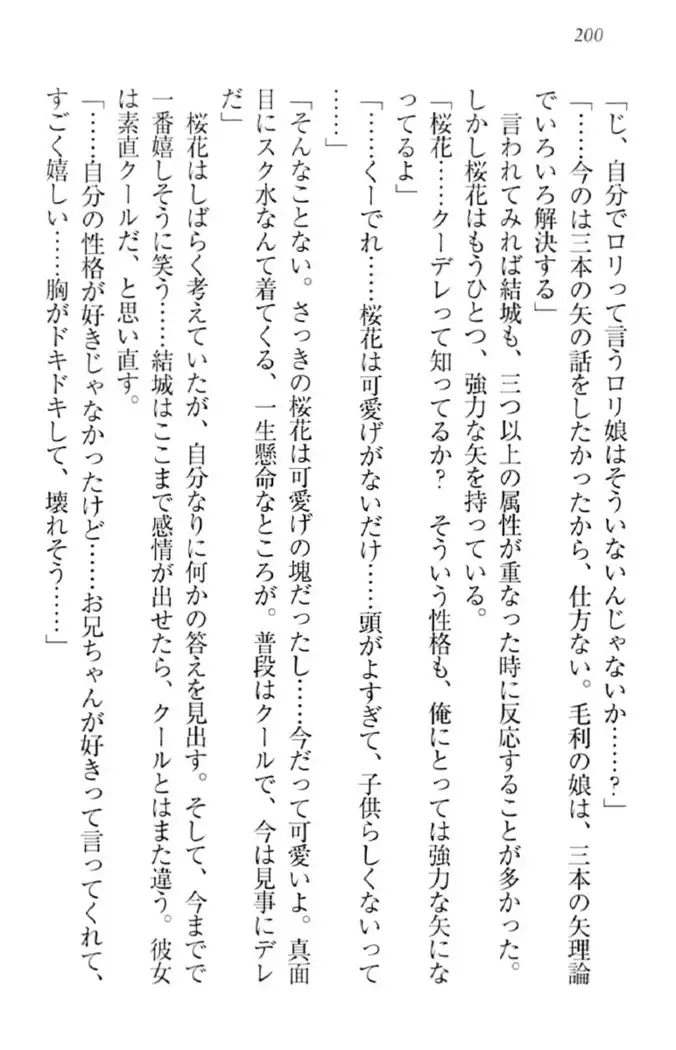 200
「じ、自分でロリって言うロリ娘はそういないんじゃないか……?」
「……今のは三本の矢の話をしたかったから、仕方ない。毛利の娘は、三本の矢理論
でいろいろ解決する」
言われてみれば結城も、三つ以上の属性が重なった時に反応することが多かった。
しかし桜花はもうひとつ、強力な矢を持っている。
「桜花……クーデレって知ってるか? そういう性格も、俺にとっては強力な矢にな
ってるよ」
「……くーでれ……桜花は可愛げがないだけ……頭がよすぎて、子供らしくないって
……」
「そんなことない。さっきの桜花は可愛げの塊だったし……今だって可愛いよ。真面
目にスク水なんて着てくる、一生懸命なところが。普段はクールで、今は見事にデレ
だ」
桜花はしばらく考えていたが、自分なりに何かの答えを見出す。そして、今までで
一番嬉しそうに笑う……結城はここまで感情が出せたら、クールとはまた違う。彼女
は素直クールだ、と思い直す。
「……自分の性格が好きじゃなかったけど……お兄ちゃんが好きって言ってくれて、
すごく嬉しい……胸がドキドキして、壊れそう……」